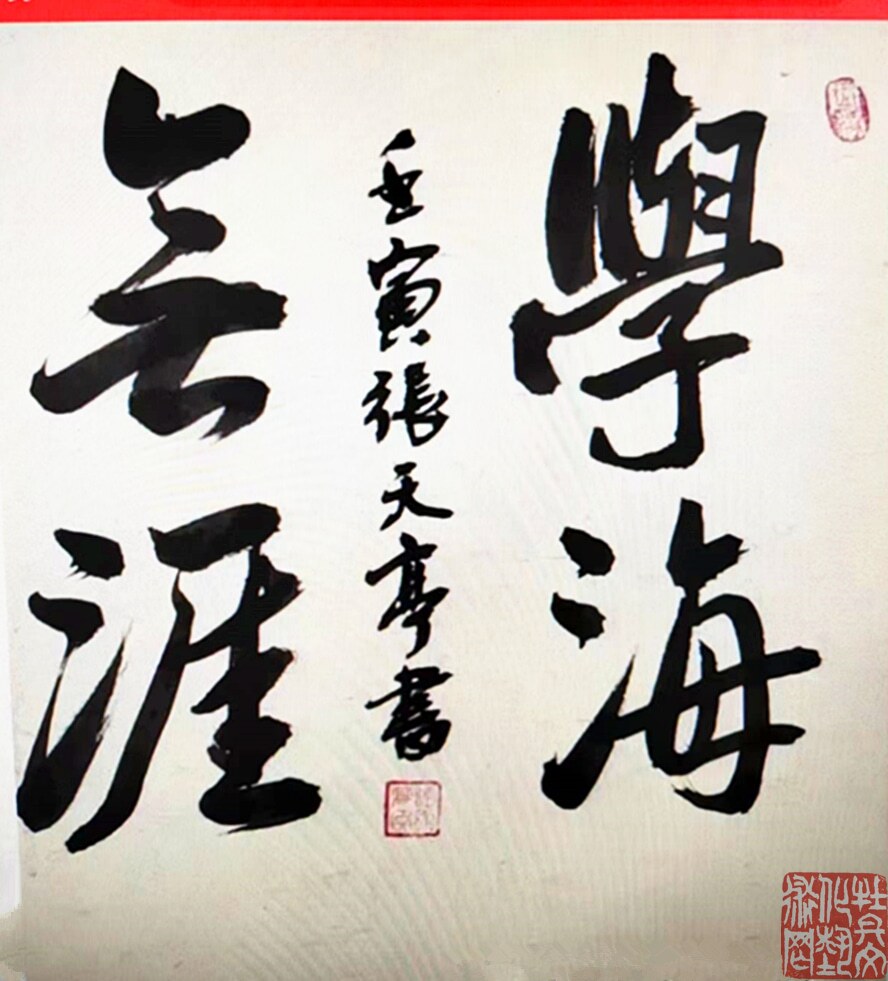 學海
無涯
壬寅張天亭書